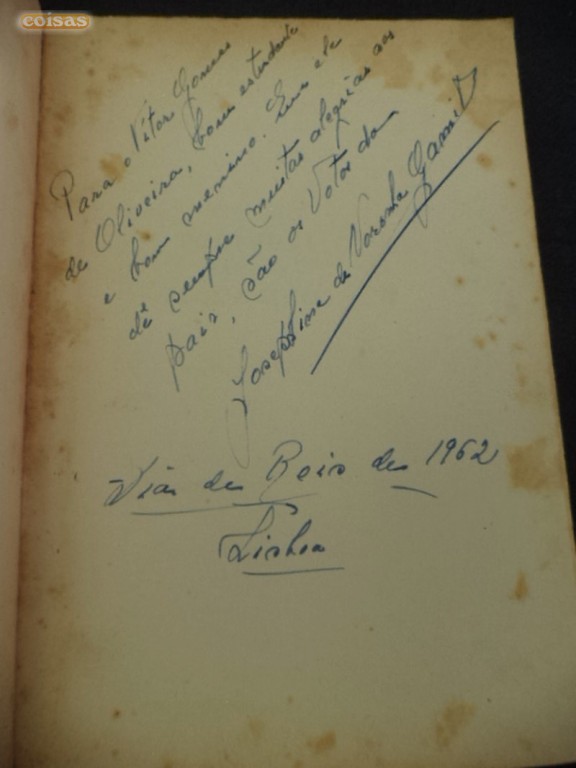 coisas
Para o Vitor Gomes
de Oliveira, bom estudante
e bom menino. Que ele
dê sempre muitas alegrias aos
pais, são os votos da
Josephine de Noronha Gamito
Dia de Reis de 1962
Lisboa